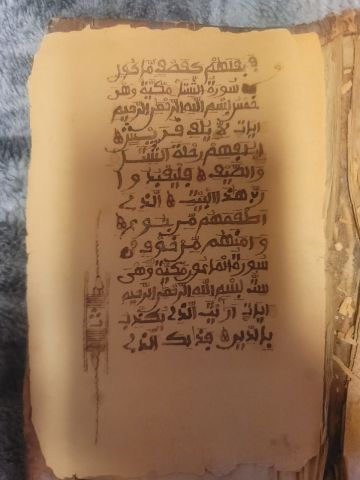 فجعلهم كعصف ماكول
سورة الشتاء مكية وهى
خمس بسم الله الرحمن الرحيم
ايات لايلف قريش
ايلفهم رحلة الشتاء
والصيف فليعبدوا
رب هذا البيت الذى
اطعمهم من جوع
وامنهم من خوف
سورة الماعون مكية وهى
ست بسم الله الرحمن الرحيم
ايات اريت الذى يكذب
بالدين فذلك الذى